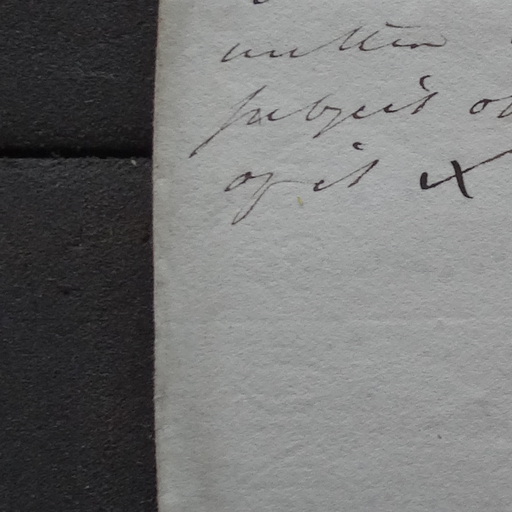 written
subject of
of it X